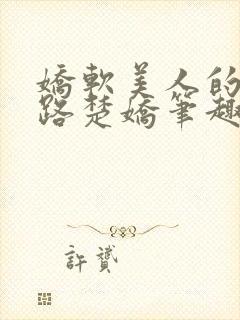 嬌軟美人的
路楚嬌筆趣
許贊